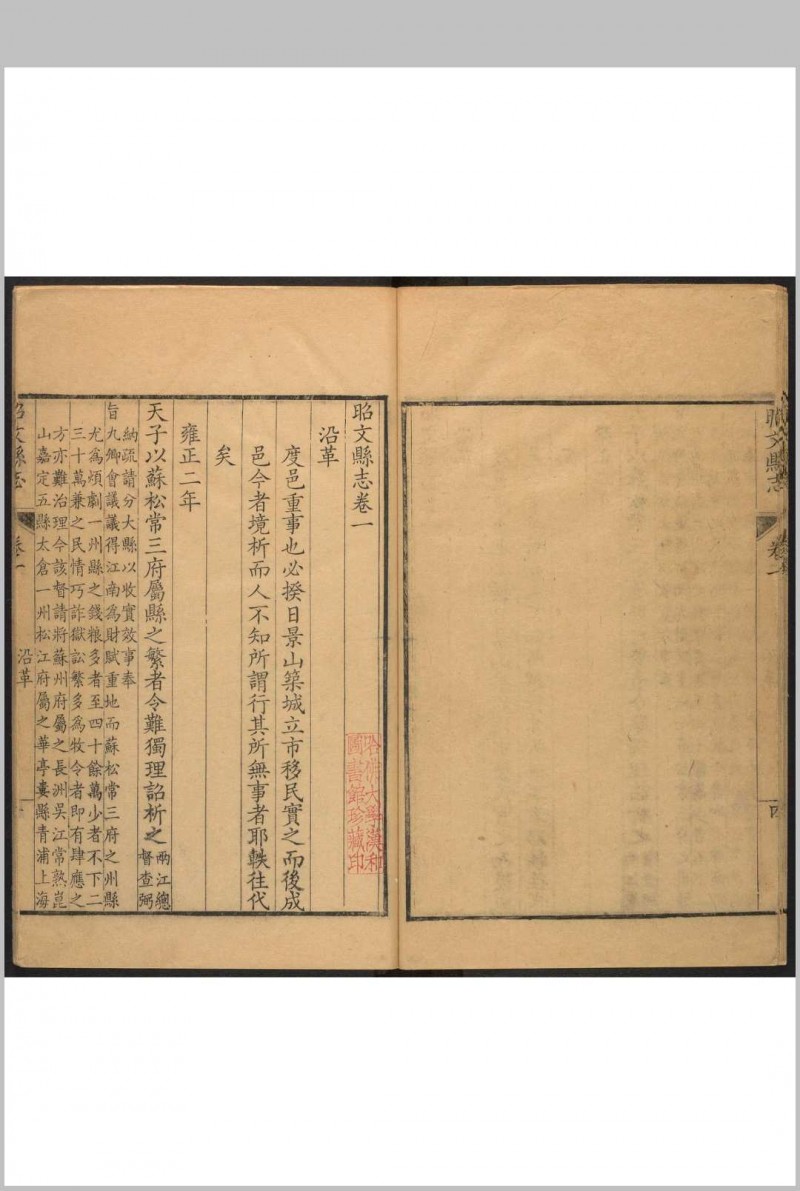 昭文縣志
卷一
四
昭文縣志卷一
哈佛大學漢和
圖書館珍藏印
沿革
度邑重事也必揆日景山築城立市移民實之而後成
邑今者境析而人不知所謂行其所無事者耶軼往代
矣
雍正二年
天子以蘇松常三府屬縣之繁者令難獨理詔析之
兩江總
督查弼
納疏請分大縣以收實效事奉
旨九卿會議議得江南為財賦重地而蘇松常三府之州縣
尤為煩劇一州縣之錢粮多者至四十餘萬少者不下二
三十萬兼之民情巧詐獄訟繁多為牧令者即有肆應之
方亦難治理今該督請將蘇州府屬之長洲吳江常熟崑
山嘉定五縣太倉一州松江府屬之華亭婁縣青浦上海
昭文縣志
卷一
沿革